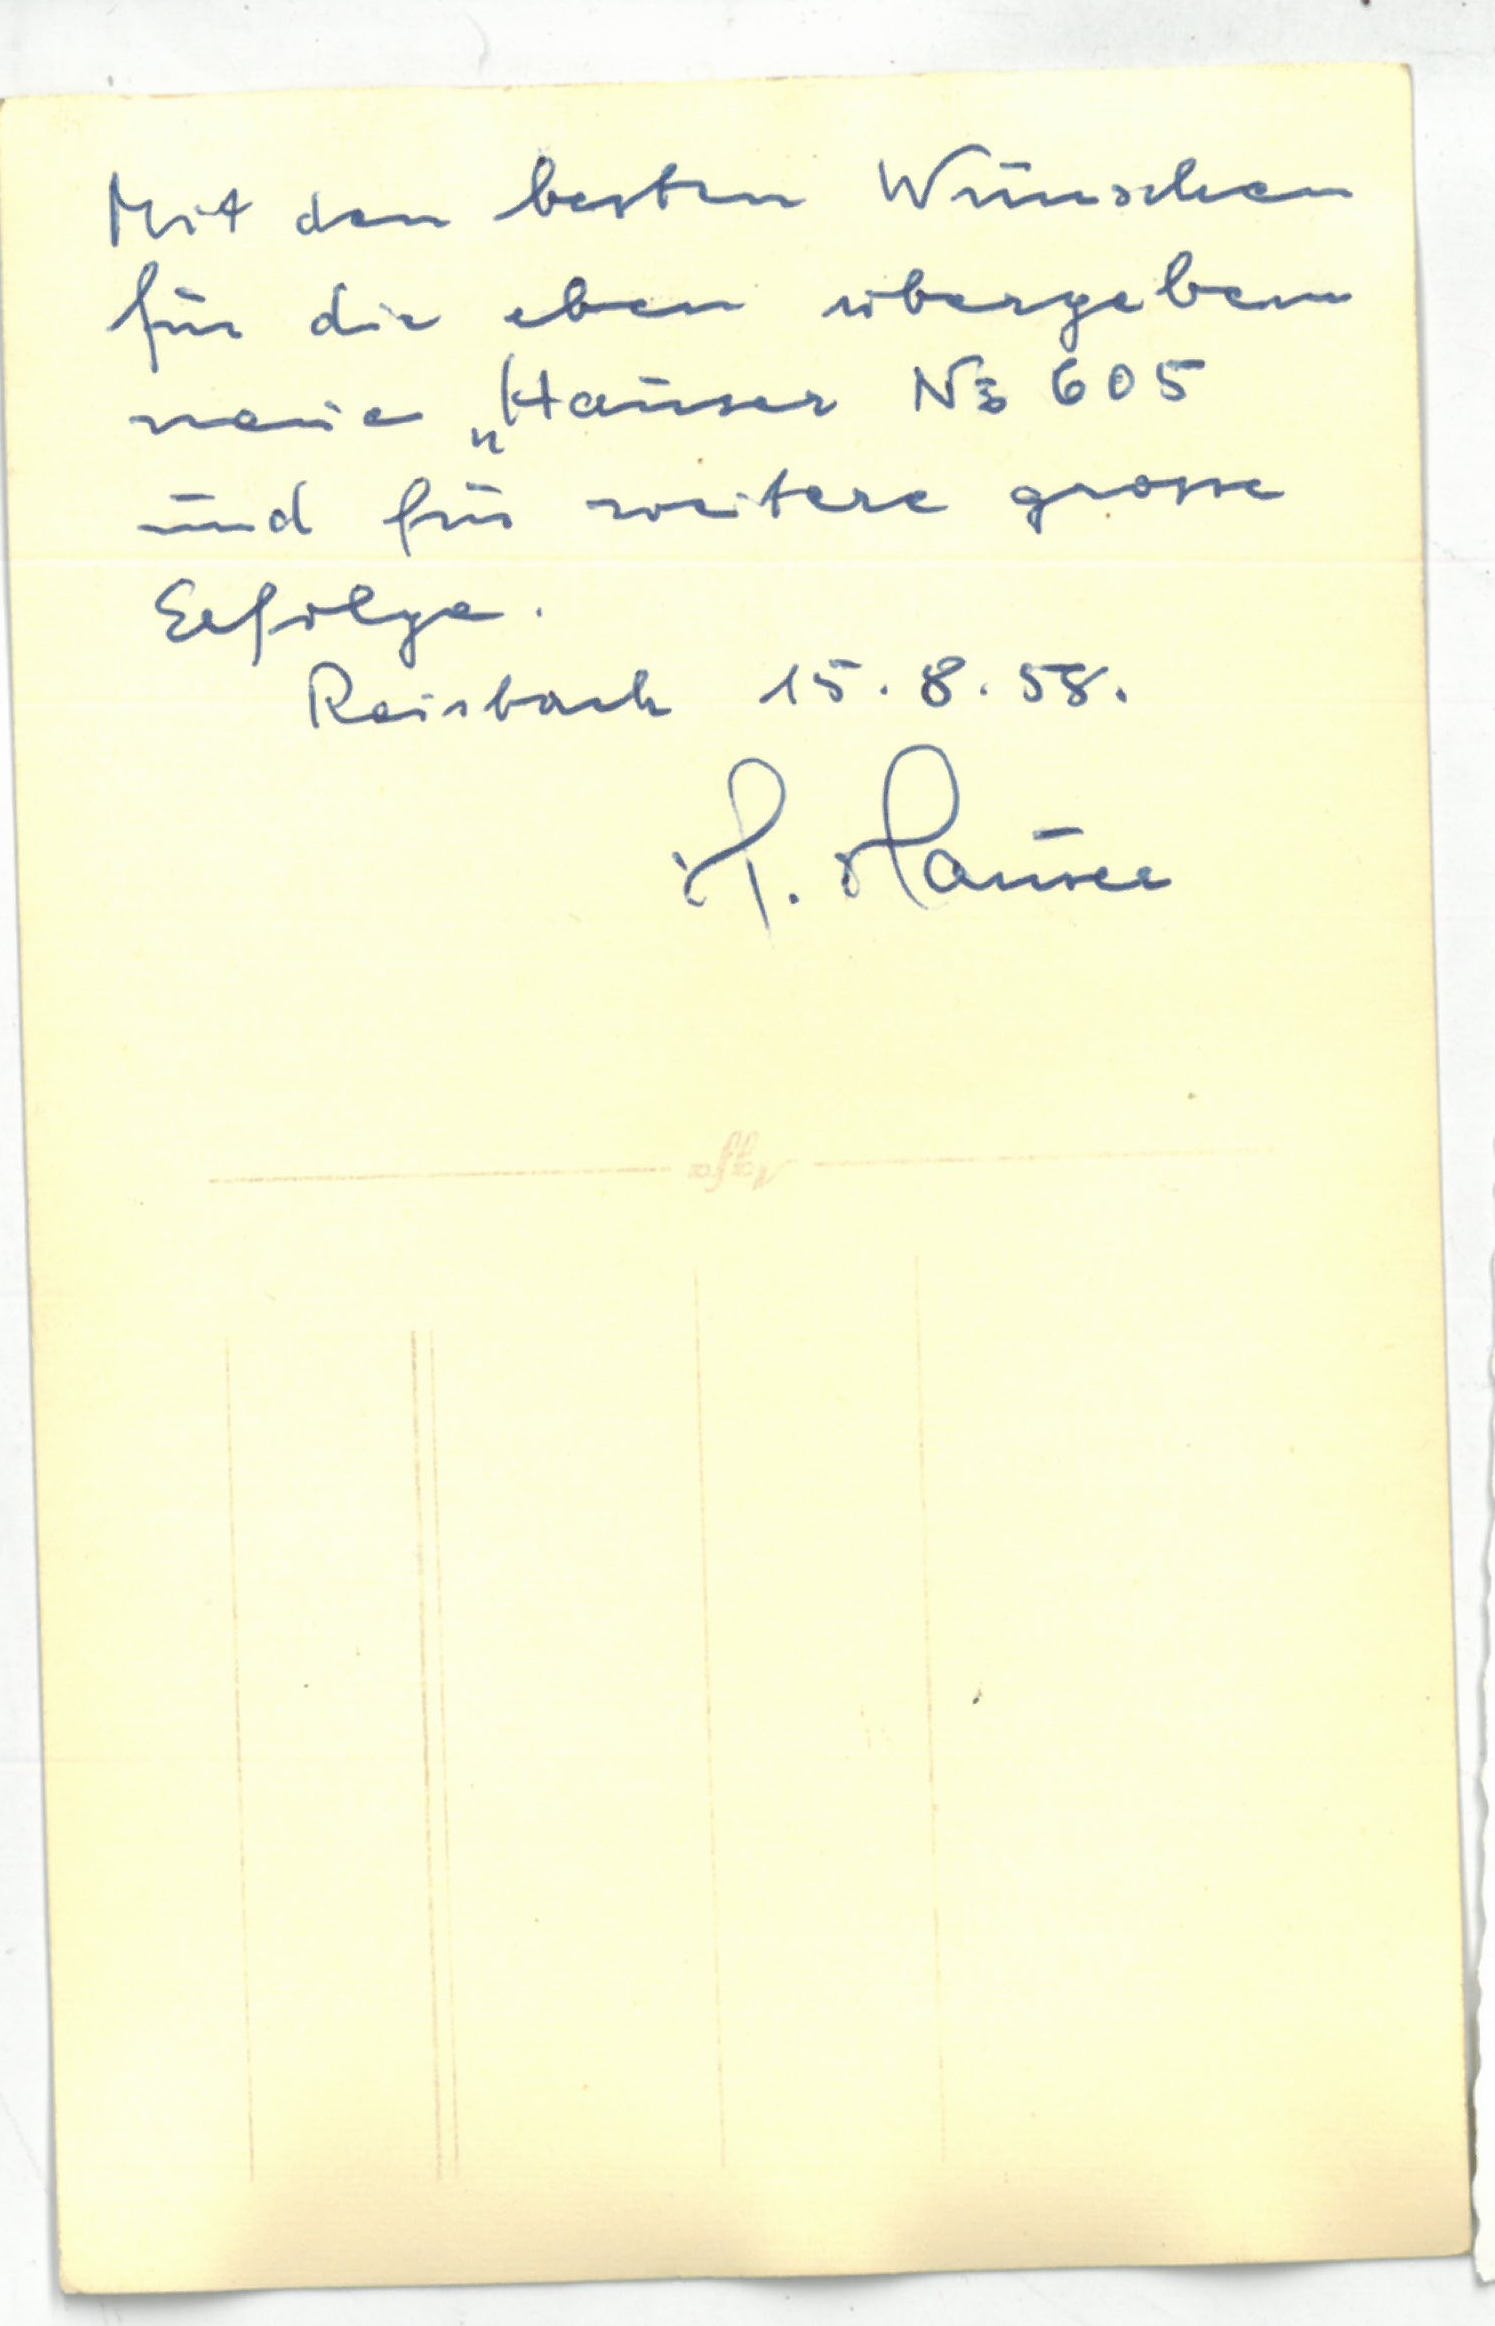 Mit den besten Wünschen
für die eben übergebene
neue „Hauser No 605
und für weitere grosse
Erfolge.
Reisbach 15.8.58.
H. Hauser